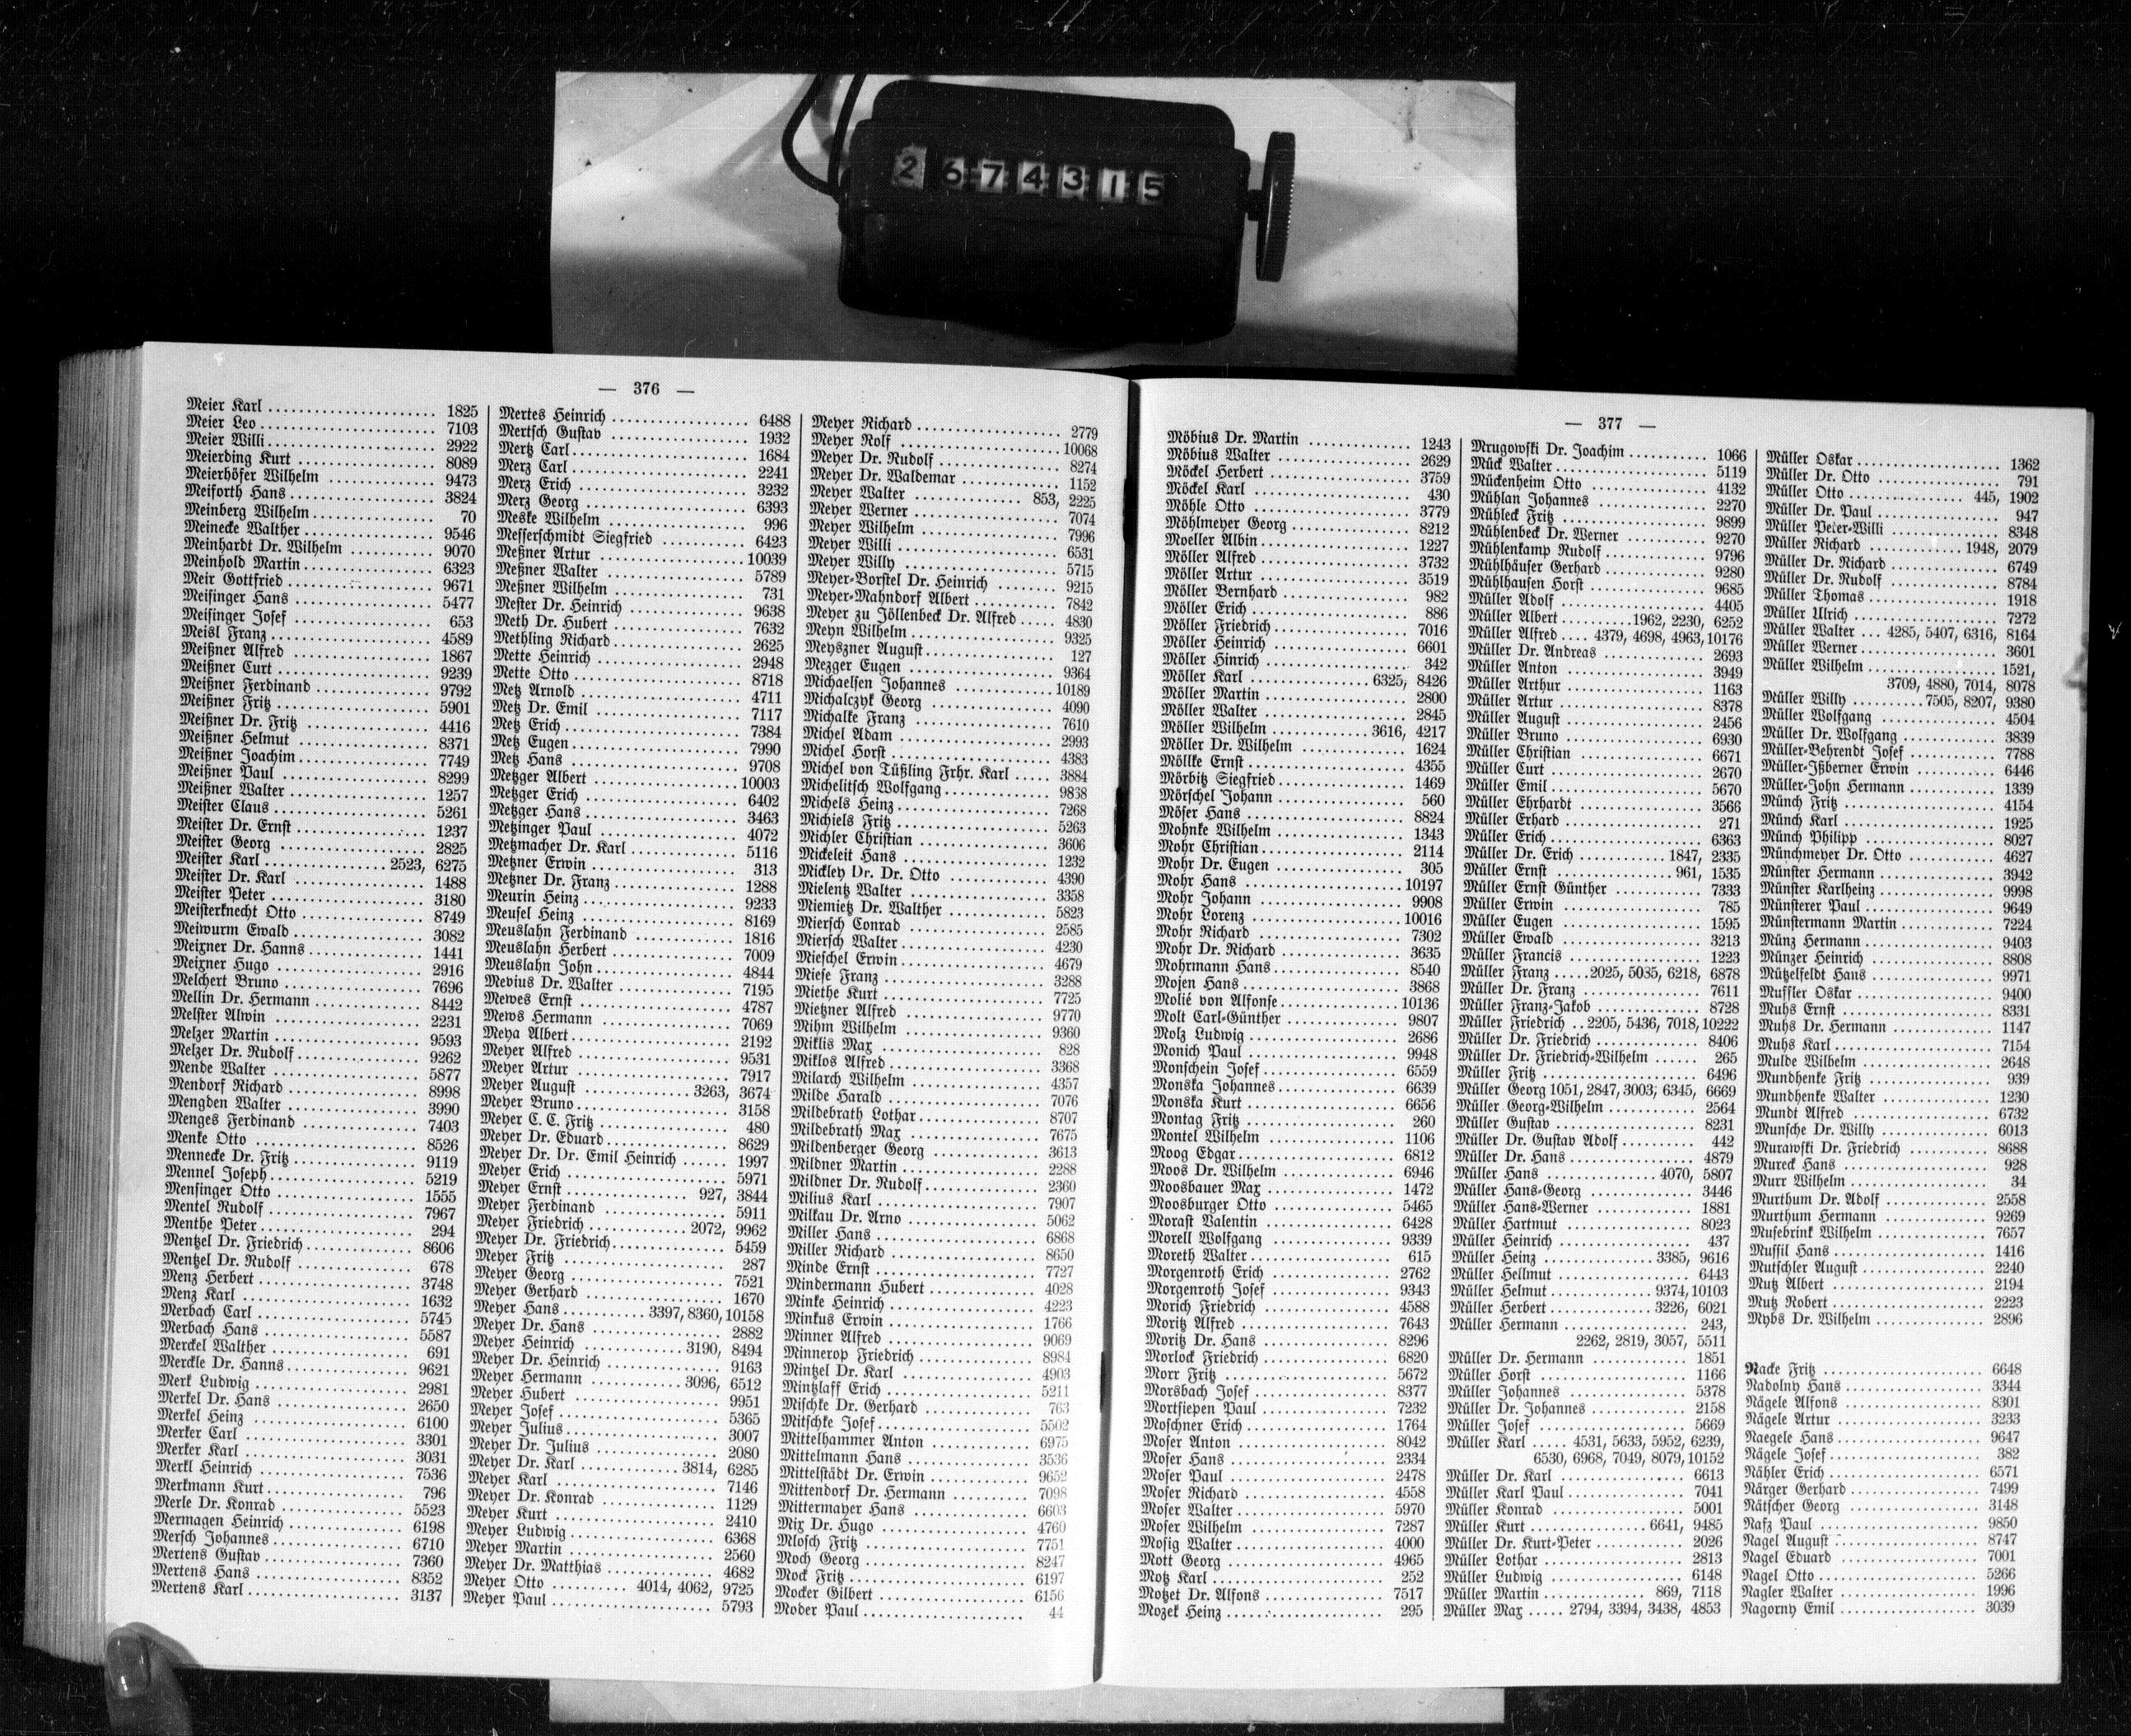 2674315
— 376 —
Meier Karl ..... 1825
Meier Leo ..... 7103
Meier Willi ..... 2922
Meierding Kurt ..... 8089
Meierhöfer Wilhelm ..... 9473
Meiforth Hans ..... 3824
Meinberg Wilhelm ..... 70
Meinecke Walther ..... 9546
Meinhardt Dr. Wilhelm ..... 9070
Meinhold Martin ..... 6323
Meir Gottfried ..... 9671
Meisinger Hans ..... 5477
Meisinger Josef ..... 653
Meisl Franz ..... 4589
Meißner Alfred ..... 1867
Meißner Curt ..... 9239
Meißner Ferdinand ..... 9792
Meißner Fritz ..... 5901
Meißner Dr. Fritz ..... 4416
Meißner Helmut ..... 8371
Meißner Joachim ..... 7749
Meißner Paul ..... 8299
Meißner Walter ..... 1257
Meister Claus ..... 5261
Meister Dr. Ernst ..... 1237
Meister Georg ..... 2825
Meister Karl ..... 2523, 6275
Meister Dr. Karl ..... 1488
Meister Peter ..... 3180
Meisterknecht Otto ..... 8749
Meiwurm Ewald ..... 3082
Meixner Dr. Hanns ..... 1441
Meixner Hugo ..... 2916
Melchert Bruno ..... 7696
Mellin Dr. Hermann ..... 8442
Melster Alwin ..... 2231
Melzer Martin ..... 9593
Melzer Dr. Rudolf ..... 9262
Mende Walter ..... 5877
Mendorf Richard ..... 8998
Mengden Walter ..... 3990
Menges Ferdinand ..... 7403
Menke Otto ..... 8526
Mennecke Dr. Fritz ..... 9119
Mennel Joseph ..... 5219
Mensinger Otto ..... 1555
Mentel Rudolf ..... 7967
Menthe Peter ..... 294
Mentzel Dr. Friedrich ..... 8606
Mentzel Dr. Rudolf ..... 678
Menz Herbert ..... 3748
Menz Karl ..... 1632
Merbach Carl ..... 5745
Merbach Hans ..... 5587
Merckel Walther ..... 691
Merckle Dr. Hanns ..... 9621
Merk Ludwig ..... 2981
Merkel Dr. Hans ..... 2650
Merkel Heinz ..... 6100
Merker Carl ..... 3301
Merker Karl ..... 3031
Merkl Heinrich ..... 7536
Merkmann Kurt ..... 796
Merle Dr. Konrad ..... 5523
Mermagen Heinrich ..... 6198
Mersch Johannes ..... 6710
Mertens Gustav ..... 7360
Mertens Hans ..... 8352
Mertens Karl ..... 3137
Mertes Heinrich ..... 6488
Mertsch Gustav ..... 1932
Mertz Carl ..... 1684
Merz Carl ..... 2241
Merz Erich ..... 3232
Merz Georg ..... 6393
Meske Wilhelm ..... 996
Messerschmidt Siegfried ..... 6423
Meßner Artur ..... 10039
Meßner Walter ..... 5789
Meßner Wilhelm ..... 731
Mester Dr. Heinrich ..... 9638
Meth Dr. Hubert ..... 7632
Methling Richard ..... 2625
Mette Heinrich ..... 2948
Mette Otto ..... 8718
Metz Arnold ..... 4711
Metz Dr. Emil ..... 7117
Metz Erich ..... 7384
Metz Eugen ..... 7990
Metz Hans ..... 9708
Metzger Albert ..... 10003
Metzger Erich ..... 6402
Metzger Hans ..... 3463
Metzinger Paul ..... 4072
Metzmacher Dr. Karl ..... 5116
Metzner Erwin ..... 313
Metzner Dr. Franz ..... 1288
Meurin Heinz ..... 9233
Meusel Heinz ..... 8169
Meuslahn Ferdinand ..... 1816
Meuslahn Herbert ..... 7009
Meuslahn John ..... 4844
Mevius Dr. Walter ..... 7195
Mewes Ernst ..... 4787
Mews Hermann ..... 7069
Meya Albert ..... 2192
Meyer Alfred ..... 9531
Meyer Artur ..... 7917
Meyer August ..... 3263, 3674
Meyer Bruno ..... 3158
Meyer C. C. Fritz ..... 480
Meyer Dr. Eduard ..... 8629
Meyer Dr. Dr. Emil Heinrich ..... 1997
Meyer Erich ..... 5971
Meyer Ernst ..... 927, 3844
Meyer Ferdinand ..... 5911
Meyer Friedrich ..... 2072, 9962
Meyer Dr. Friedrich ..... 5459
Meyer Fritz ..... 287
Meyer Georg ..... 7521
Meyer Gerhard ..... 1670
Meyer Hans ..... 3397, 8360, 10158
Meyer Dr. Hans ..... 2882
Meyer Heinrich ..... 3190, 8494
Meyer Dr. Heinrich ..... 9163
Meyer Hermann ..... 3096, 6512
Meyer Hubert ..... 9951
Meyer Josef ..... 5365
Meyer Julius ..... 3007
Meyer Dr. Julius ..... 2080
Meyer Dr. Karl ..... 3814, 6285
Meyer Karl ..... 7146
Meyer Dr. Konrad ..... 1129
Meyer Kurt ..... 2410
Meyer Ludwig ..... 6368
Meyer Martin ..... 2560
Meyer Dr. Matthias ..... 4682
Meyer Otto ..... 4014, 4062, 9725
Meyer Paul ..... 5793
Meyer Richard ..... 2779
Meyer Rolf ..... 10068
Meyer Dr. Rudolf ..... 8274
Meyer Dr. Waldemar ..... 1152
Meyer Walter ..... 853, 2225
Meyer Werner ..... 7074
Meyer Wilhelm ..... 7996
Meyer Willi ..... 6531
Meyer Willy ..... 5715
Meyer-Borstel Dr. Heinrich ..... 9215
Meyer-Mahndorf Albert ..... 7842
Meyer zu Jöllenbeck Dr. Alfred ..... 4830
Meyn Wilhelm ..... 9325
Meyszner August ..... 127
Mezger Eugen ..... 9364
Michaelsen Johannes ..... 10189
Michalczyk Georg ..... 4090
Michalke Franz ..... 7610
Michel Adam ..... 2993
Michel Horst ..... 4383
Michel von Tüßling Frhr. Karl ..... 3884
Michelitsch Wolfgang ..... 9838
Michels Heinz ..... 7268
Michiels Fritz ..... 5263
Michler Christian ..... 3606
Mickeleit Hans ..... 1232
Mickley Dr. Dr. Otto ..... 4390
Mielentz Walter ..... 3358
Miemietz Dr. Walther ..... 5823
Miersch Conrad ..... 2585
Miersch Walter ..... 4230
Mieschel Erwin ..... 4679
Miese Franz ..... 3288
Miethe Kurt ..... 7725
Mietzner Alfred ..... 9770
Mihm Wilhelm ..... 9360
Miklis Max ..... 828
Miklos Alfred ..... 3368
Milarch Wilhelm ..... 4357
Milde Harald ..... 7076
Mildebrath Lothar ..... 8707
Mildebrath Max ..... 7675
Mildenberger Georg ..... 3613
Mildner Martin ..... 2288
Mildner Dr. Rudolf ..... 2360
Milius Karl ..... 7907
Milkau Dr. Arno ..... 5062
Miller Hans ..... 6868
Miller Richard ..... 8650
Minde Ernst ..... 7727
Mindermann Hubert ..... 4028
Minke Heinrich ..... 4223
Minkus Erwin ..... 1766
Minner Alfred ..... 9069
Minnerop Friedrich ..... 8984
Mintzel Dr. Karl ..... 4903
Mintzlaff Erich ..... 5211
Mischke Dr. Gerhard ..... 763
Mitschke Josef ..... 5502
Mittelhammer Anton ..... 6975
Mittelmann Hans ..... 3536
Mittelstädt Dr. Erwin ..... 9652
Mittendorf Dr. Hermann ..... 7098
Mittermayer Hans ..... 6603
Mix Dr. Hugo ..... 4760
Mlosch Fritz ..... 7751
Moch Georg ..... 8247
Mock Fritz ..... 6197
Mocker Gilbert ..... 6156
Moder Paul ..... 44
— 377 —
Möbius Dr. Martin ..... 1243
Möbius Walter ..... 2629
Möckel Herbert ..... 3759
Möckel Karl ..... 430
Möhle Otto ..... 3779
Möhlmeyer Georg ..... 8212
Moeller Albin ..... 1227
Möller Alfred ..... 3732
Möller Artur ..... 3519
Möller Bernhard ..... 982
Möller Erich ..... 886
Möller Friedrich ..... 7016
Möller Heinrich ..... 6601
Möller Hinrich ..... 342
Möller Karl ..... 6325, 8426
Möller Martin ..... 2800
Möller Walter ..... 2845
Möller Wilhelm ..... 3616, 4217
Möller Dr. Wilhelm ..... 1624
Möllke Ernst ..... 4355
Mörbitz Siegfried ..... 1469
Mörschel Johann ..... 560
Möser Hans ..... 8824
Mohnke Wilhelm ..... 1343
Mohr Christian ..... 2114
Mohr Dr. Eugen ..... 305
Mohr Hans ..... 10197
Mohr Johann ..... 9908
Mohr Lorenz ..... 10016
Mohr Richard ..... 7302
Mohr Dr. Richard ..... 3635
Mohrmann Hans ..... 8540
Mojen Hans ..... 3868
Molié von Alfonse ..... 10136
Molt Carl-Günther ..... 9807
Molz Ludwig ..... 2686
Monich Paul ..... 9948
Monschein Josef ..... 6559
Monska Johannes ..... 6639
Monska Kurt ..... 6656
Montag Fritz ..... 260
Montel Wilhelm ..... 1106
Moog Edgar ..... 6812
Moos Dr. Wilhelm ..... 6946
Moosbauer Max ..... 1472
Moosburger Otto ..... 5465
Morast Valentin ..... 6428
Morell Wolfgang ..... 9339
Moreth Walter ..... 615
Morgenroth Erich ..... 2762
Morgenroth Josef ..... 9343
Morich Friedrich ..... 4588
Moritz Alfred ..... 7643
Moritz Dr. Hans ..... 8296
Morlock Friedrich ..... 6820
Morr Fritz ..... 5672
Morsbach Josef ..... 8377
Mortsiepen Paul ..... 7232
Moschner Erich ..... 1764
Moser Anton ..... 8042
Moser Hans ..... 2334
Moser Paul ..... 2478
Moser Richard ..... 4558
Moser Walter ..... 5970
Moser Wilhelm ..... 7287
Mosig Walter ..... 4000
Mott Georg ..... 4965
Motz Karl ..... 252
Motzet Dr. Alfons ..... 7517
Mozet Heinz ..... 295
Mrugowski Dr. Joachim ..... 1066
Mück Walter ..... 5119
Mückenheim Otto ..... 4132
Mühlan Johannes ..... 2270
Mühleck Fritz ..... 9899
Mühlenbeck Dr. Werner ..... 9270
Mühlenkamp Rudolf ..... 9796
Mühlhäuser Gerhard ..... 9280
Mühlhausen Horst ..... 9685
Müller Adolf ..... 4405
Müller Albert ..... 1962, 2230, 6252
Müller Alfred ..... 4379, 4698, 4963, 10176
Müller Dr. Andreas ..... 2693
Müller Anton ..... 3949
Müller Arthur ..... 1163
Müller Artur ..... 8378
Müller August ..... 2456
Müller Bruno ..... 6930
Müller Christian ..... 6671
Müller Curt ..... 2670
Müller Emil ..... 5670
Müller Ehrhardt ..... 3566
Müller Erhard ..... 271
Müller Erich ..... 6363
Müller Dr. Erich ..... 1847, 2335
Müller Ernst ..... 961, 1535
Müller Ernst Günther ..... 7333
Müller Erwin ..... 785
Müller Eugen ..... 1595
Müller Ewald ..... 3213
Müller Francis ..... 1223
Müller Franz ..... 2025, 5035, 6218, 6878
Müller Dr. Franz ..... 7611
Müller Franz-Jakob ..... 8728
Müller Friedrich .. 2205, 5436, 7018, 10222
Müller Dr. Friedrich ..... 8406
Müller Dr. Friedrich-Wilhelm ..... 265
Müller Fritz ..... 6496
Müller Georg 1051, 2847, 3003; 6345, 6669
Müller Georg-Wilhelm ..... 2564
Müller Gustav ..... 8231
Müller Dr. Gustav Adolf ..... 442
Müller Dr. Hans ..... 4879
Müller Hans ..... 4070, 5807
Müller Hans-Georg ..... 3446
Müller Hans-Werner ..... 1881
Müller Hartmut ..... 8023
Müller Heinrich ..... 437
Müller Heinz ..... 3385, 9616
Müller Hellmut ..... 6443
Müller Helmut ..... 9374, 10103
Müller Herbert ..... 3226, 6021
Müller Hermann ..... 243,
2262, 2819, 3057, 5511
Müller Dr. Hermann ..... 1851
Müller Horst ..... 1166
Müller Johannes ..... 5378
Müller Dr. Johannes ..... 2158
Müller Josef ..... 5669
Müller Karl ..... 4531, 5633, 5952, 6239,
6530, 6968, 7049, 8079, 10152
Müller Dr. Karl ..... 6613
Müller Karl Paul ..... 7041
Müller Konrad ..... 5001
Müller Kurt ..... 6641, 9485
Müller Dr. Kurt-Peter ..... 2026
Müller Lothar ..... 2813
Müller Ludwig ..... 6148
Müller Martin ..... 869, 7118
Müller Max ..... 2794, 3394, 3438, 4853
Müller Oskar ..... 1362
Müller Dr. Otto ..... 791
Müller Otto ..... 445, 1902
Müller Dr. Paul ..... 947
Müller Peter-Willi ..... 8348
Müller Richard ..... 1948, 2079
Müller Dr. Richard ..... 6749
Müller Dr. Rudolf ..... 8784
Müller Thomas ..... 1918
Müller Ulrich ..... 7272
Müller Walter ... 4285, 5407, 6316, 8164
Müller Werner ..... 3601
Müller Wilhelm ..... 1521,
3709, 4880, 7014, 8078
Müller Willy ..... 7505, 8207, 9380
Müller Wolfgang ..... 4504
Müller Dr. Wolfgang ..... 3839
Müller-Behrendt Josef ..... 7788
Müller-Ißberner Erwin ..... 6446
Müller-John Hermann ..... 1339
Münch Fritz ..... 4154
Münch Karl ..... 1925
Münch Philipp ..... 8027
Münchmeyer Dr. Otto ..... 4627
Münster Hermann ..... 3942
Münster Karlheinz ..... 9998
Münsterer Paul ..... 9649
Münstermann Martin ..... 7224
Münz Hermann ..... 9403
Münzer Heinrich ..... 8808
Mützelfeldt Hans ..... 9971
Muffler Oskar ..... 9400
Muhs Ernst ..... 8331
Muhs Dr. Hermann ..... 1147
Muhs Karl ..... 7154
Mulde Wilhelm ..... 2648
Mundhenke Fritz ..... 939
Mundhenke Walter ..... 1230
Mundt Alfred ..... 6732
Munsche Dr. Willy ..... 6013
Murawski Dr. Friedrich ..... 8688
Mureck Hans ..... 928
Murr Wilhelm ..... 34
Murthum Dr. Adolf ..... 2558
Murthum Hermann ..... 9269
Musebrink Wilhelm ..... 7657
Mussil Hans ..... 1416
Mutschler August ..... 2240
Mutz Albert ..... 2194
Mutz Robert ..... 2223
Mybs Dr. Wilhelm ..... 2896
Nacke Fritz ..... 6648
Nadolny Hans ..... 3344
Nägele Alfons ..... 8301
Nägele Artur ..... 3233
Naegele Hans ..... 9647
Nägele Josef ..... 382
Nähler Erich ..... 6571
Närger Gerhard ..... 7499
Nätscher Georg ..... 3148
Nafz Paul ..... 9850
Nagel August ..... 8747
Nagel Eduard ..... 7001
Nagel Otto ..... 5266
Nagler Walter ..... 1996
Nagorny Emil ..... 3039